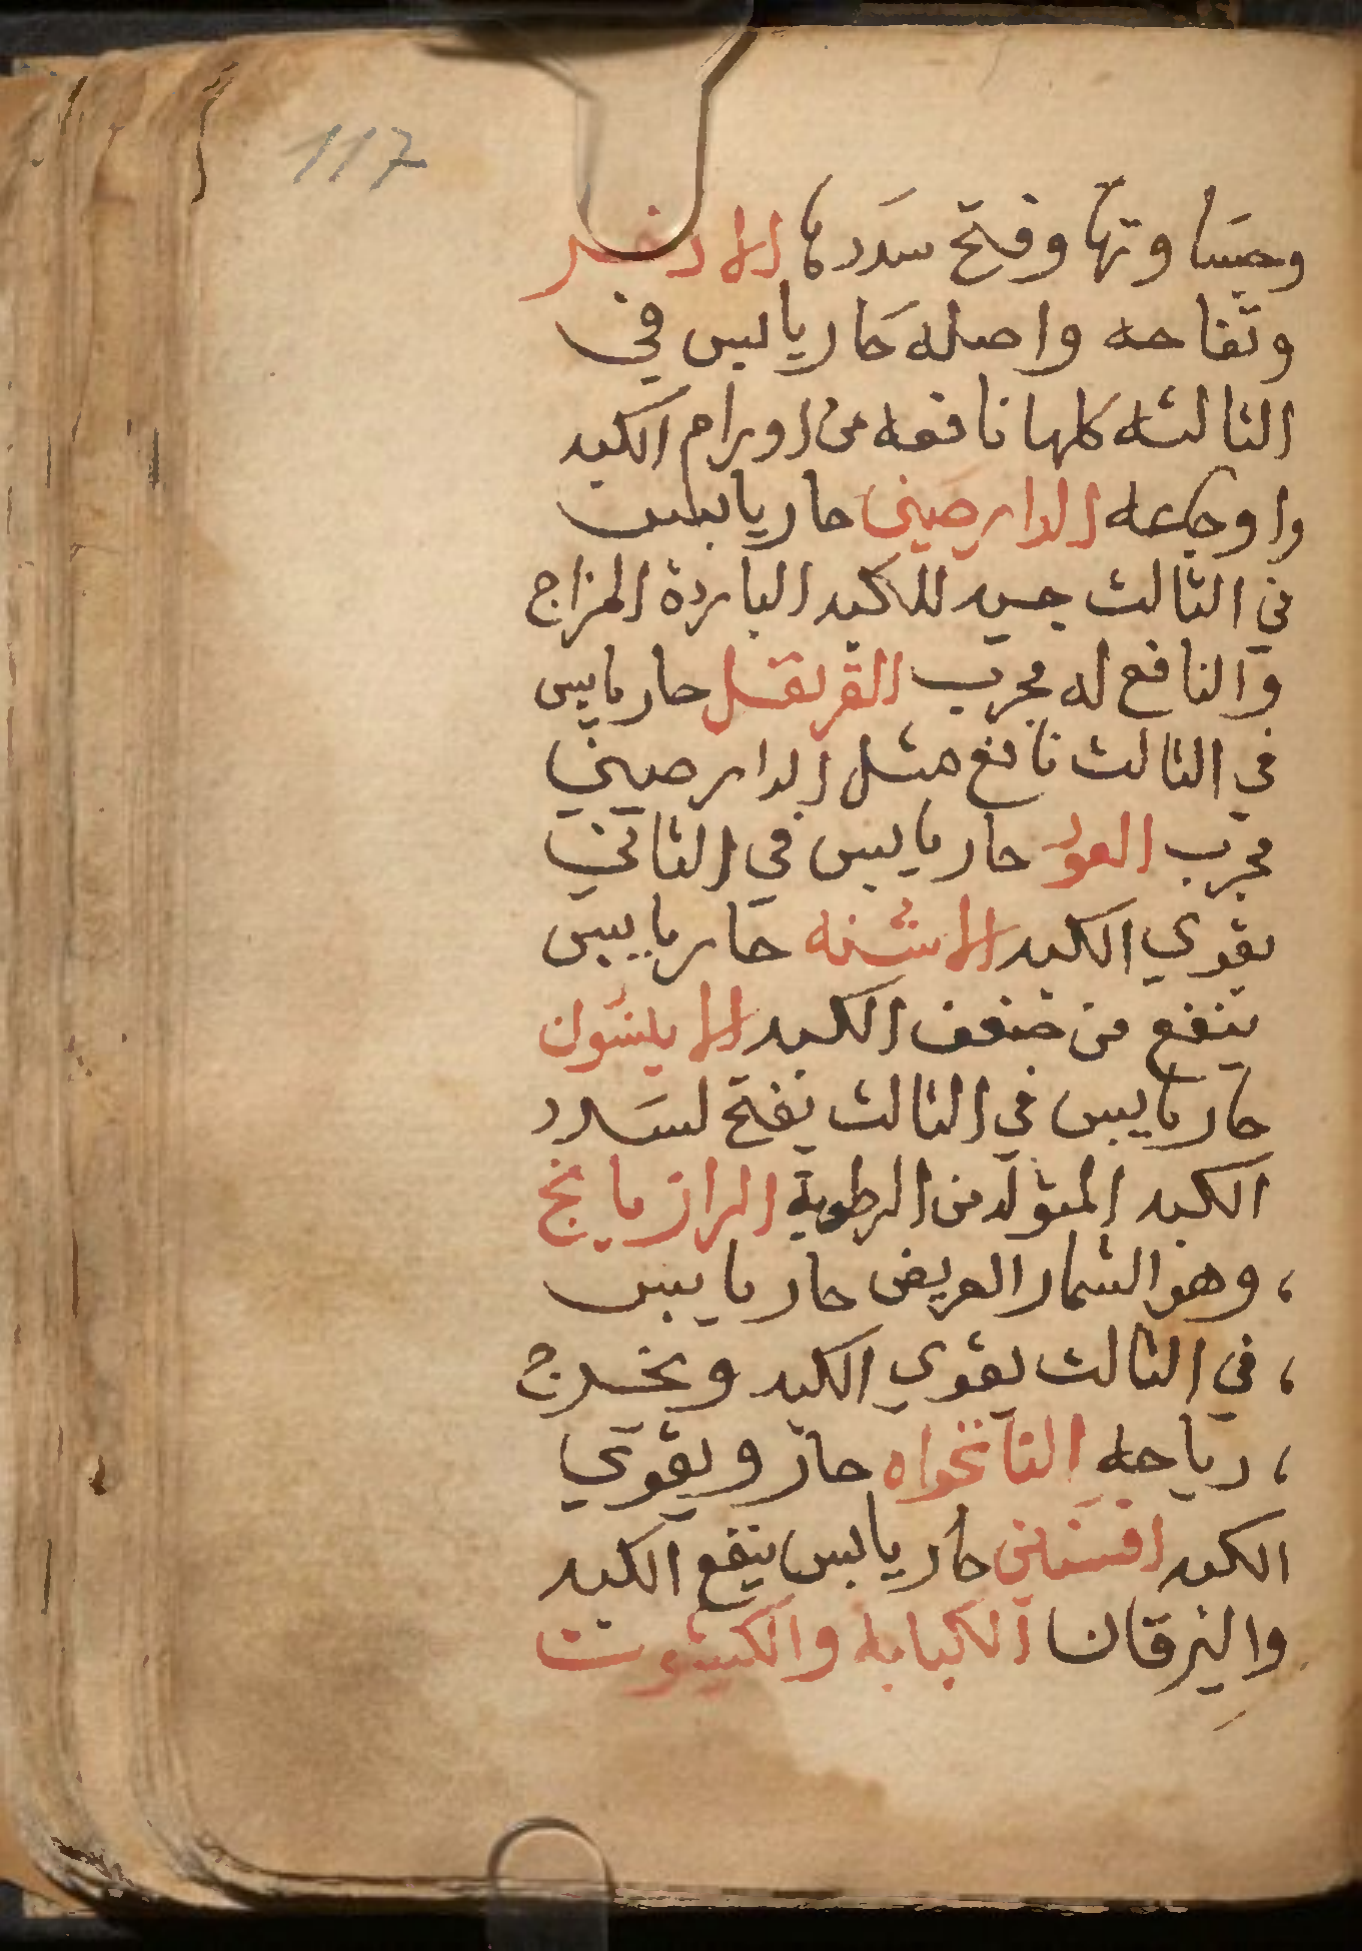 117
وجساوتها وفتح سددها الاذخر
وتفاحه واصله حار يابس في
الثالثه كلها نافعه من اورام الكبد
واوجاعه الدارصيني حار يابس
في الثالث جيد للكبد الباردة المزاج
والنافع له مجرب القرنفل حار يابس
في الثالث نافع مثل الدارصيني
مجرب العود حار يابس في الثاني
يقوي الكبد الاشنه حار يابس
ينفع من ضعف الكبد الاينسون
حار يابس في الثالث يفتح لسدد
الكبد المتولد من الرطوبة الرازيانج
، وهو الشمار العريض حار يابس
، في الثالث يقوي الكبد ويخرج
، رياحه النانخواه حار ويقوي
الكبد افسنتين حار يابس ينفع الكبد
واليرقان الكبابه والكشوت